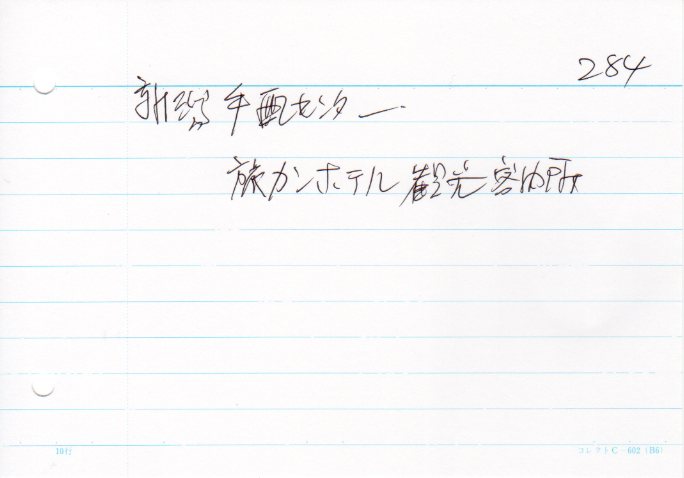 284
新潟手配センター
旅カンホテル観光案内所
10行
コレクトC-602(B6)